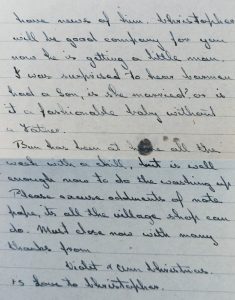 have news of him. Christopher
will be good company for you
now he is getting a little man.
I was surprised to hear
had a son, is she married? or is
it a fashionable baby without
a father.
Ben has been at home all the
week with a chill, but is well
enough now to do the washing up
Please excuse oddments of note
hope, its all the village shop can
do. Must close now with many
thanks from
Violet &
& Love to Christopher.